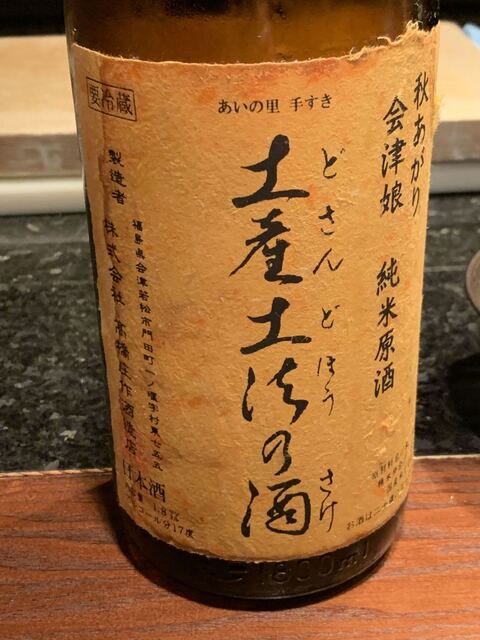 秋あがり
会津娘 純米原酒
どさんどほう さけ
土産土法の酒
あいの里 手すき
要冷蔵
福島県会津若松市門田町
製造者 株式会社 高橋庄作酒造店
日本酒
1.8
アルコール分17度
お酒は二十歳
1800ml